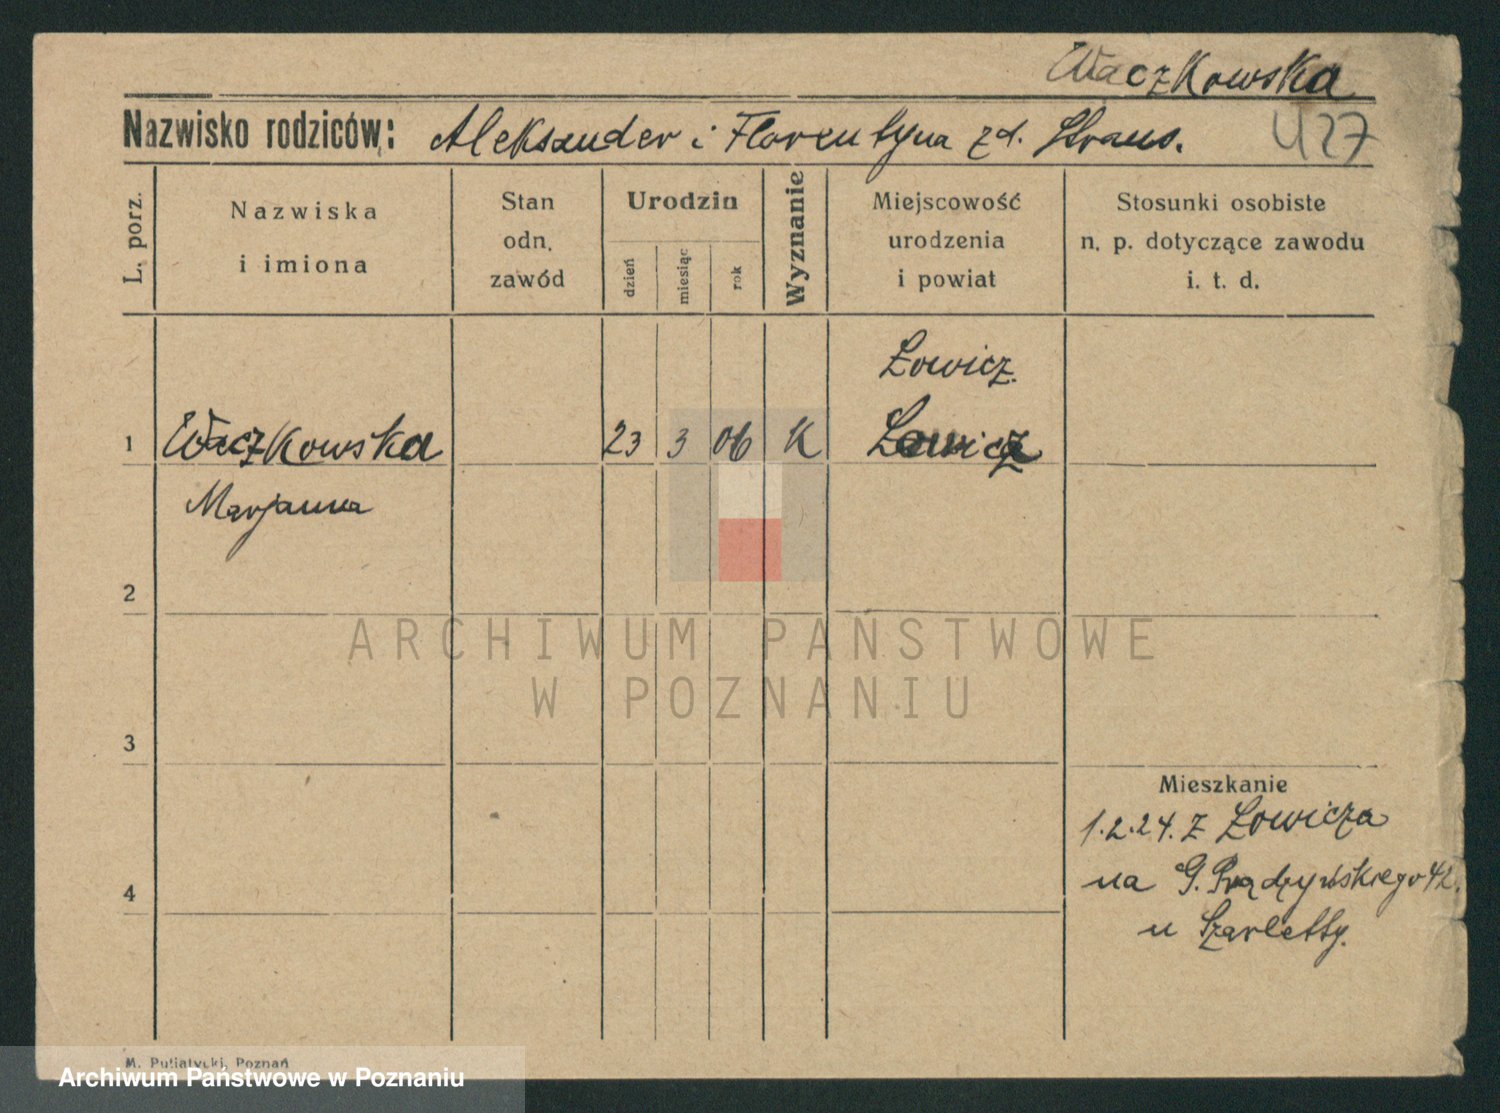 Waczkowska
Nazwisko rodziców: Aleksander i Florentyna zd. Straus.
427
L. porz.
Nazwiska
i imiona
Stan
odn.
zawód
Urodzin
dzień
miesiąc
rok
Wyznanie
Miejscowość
urodzenia
i powiat
Stosunki osobiste
n. p. dotyczące zawodu
i. t. d.
Łowicz.
1 Waczkowska 23 3 06 K Łowicz
Marjanna
2
ARCHIWUM PAŃSTWOWE
W POZNANIU
3
Mieszkanie
1.2.24. z Łowicza
4
na G. Prądzyńskiego 42.
u Szarletty.
M. Putiatycki, Poznań
Archiwum Państwowe w Poznaniu